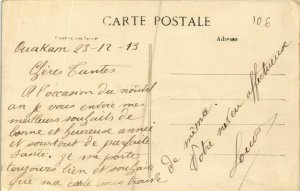 CARTE POSTALE
Correspondance
Adresse
10€
Ouakam 23-12-13
Chères Tantes
A l'occasion du nouvel
an je vous envoie mes
meilleurs souhaits de
bonne et heureuse année
et sourtout de parfaite
santé. Je me porte
toujours bien et souhaite
que ma carte vous trouve
de même.
Votre neveu affectueux